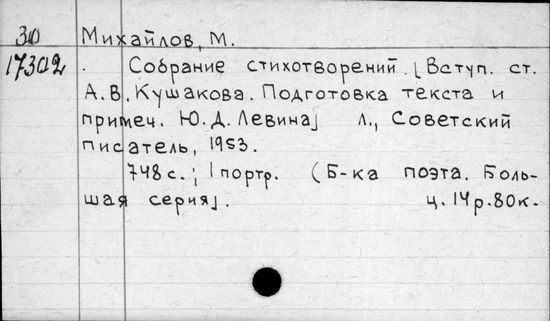 30 Михайлов, М.
17302 . Собрание стихотворений. [Вступ. ст.
А. В. Кушакова. Подготовка текста и
примеч. Ю. Д. Левина] Л., Советский
писатель, 1953.
748 с.; 1 портр. (Б-ка поэта. Боль-
шая серия]. ц. 14 р. 80 к.